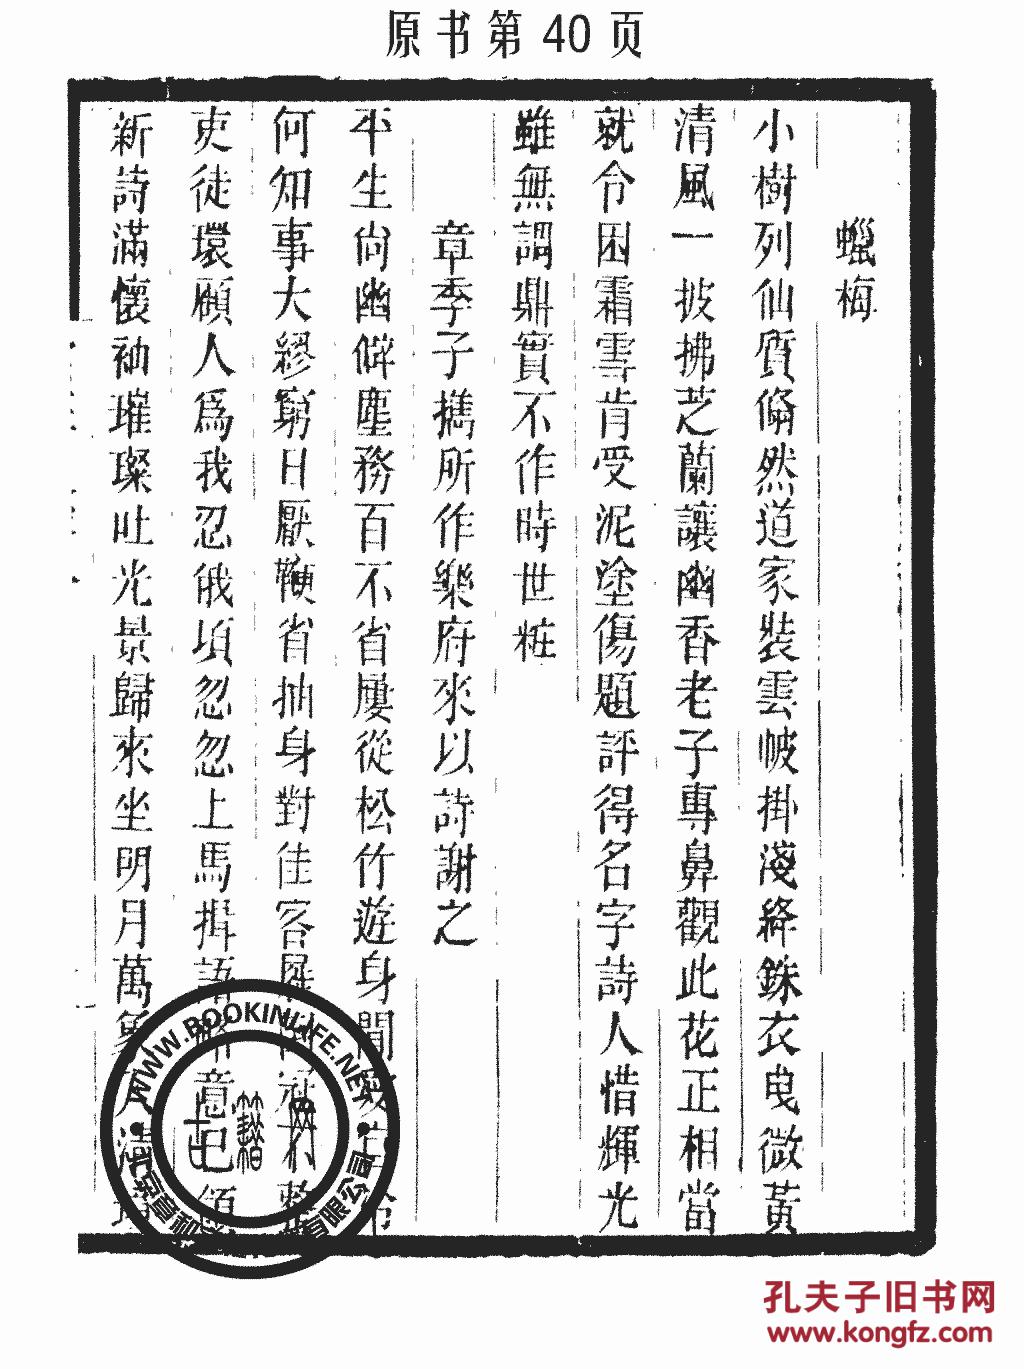 原书第 40 页
蠟梅
小樹列仙質翛然道家裝雲帔掛淺絳銖衣曳微黃
清風一披拂芝蘭讓幽香老子專鼻觀此花正相當
就令困霜雪肯受泥塗傷題評得名字詩人惜輝光
雖無調鼎實不作時世粧
章季子攜所作樂府來以詩謝之
平生尚幽僻塵務百不省屢從松竹遊身閒
何知事大繆窮日厭鞭省抽身對佳客屣
吏徒環顧人為我忍俄頃忽忽上馬揖語意已領
新詩滿懷袖璀璨吐光景歸來坐明月萬象入清
WWW.BOOKINLIFE.NET
有限公司
孔夫子旧书网
www.kongfz.com